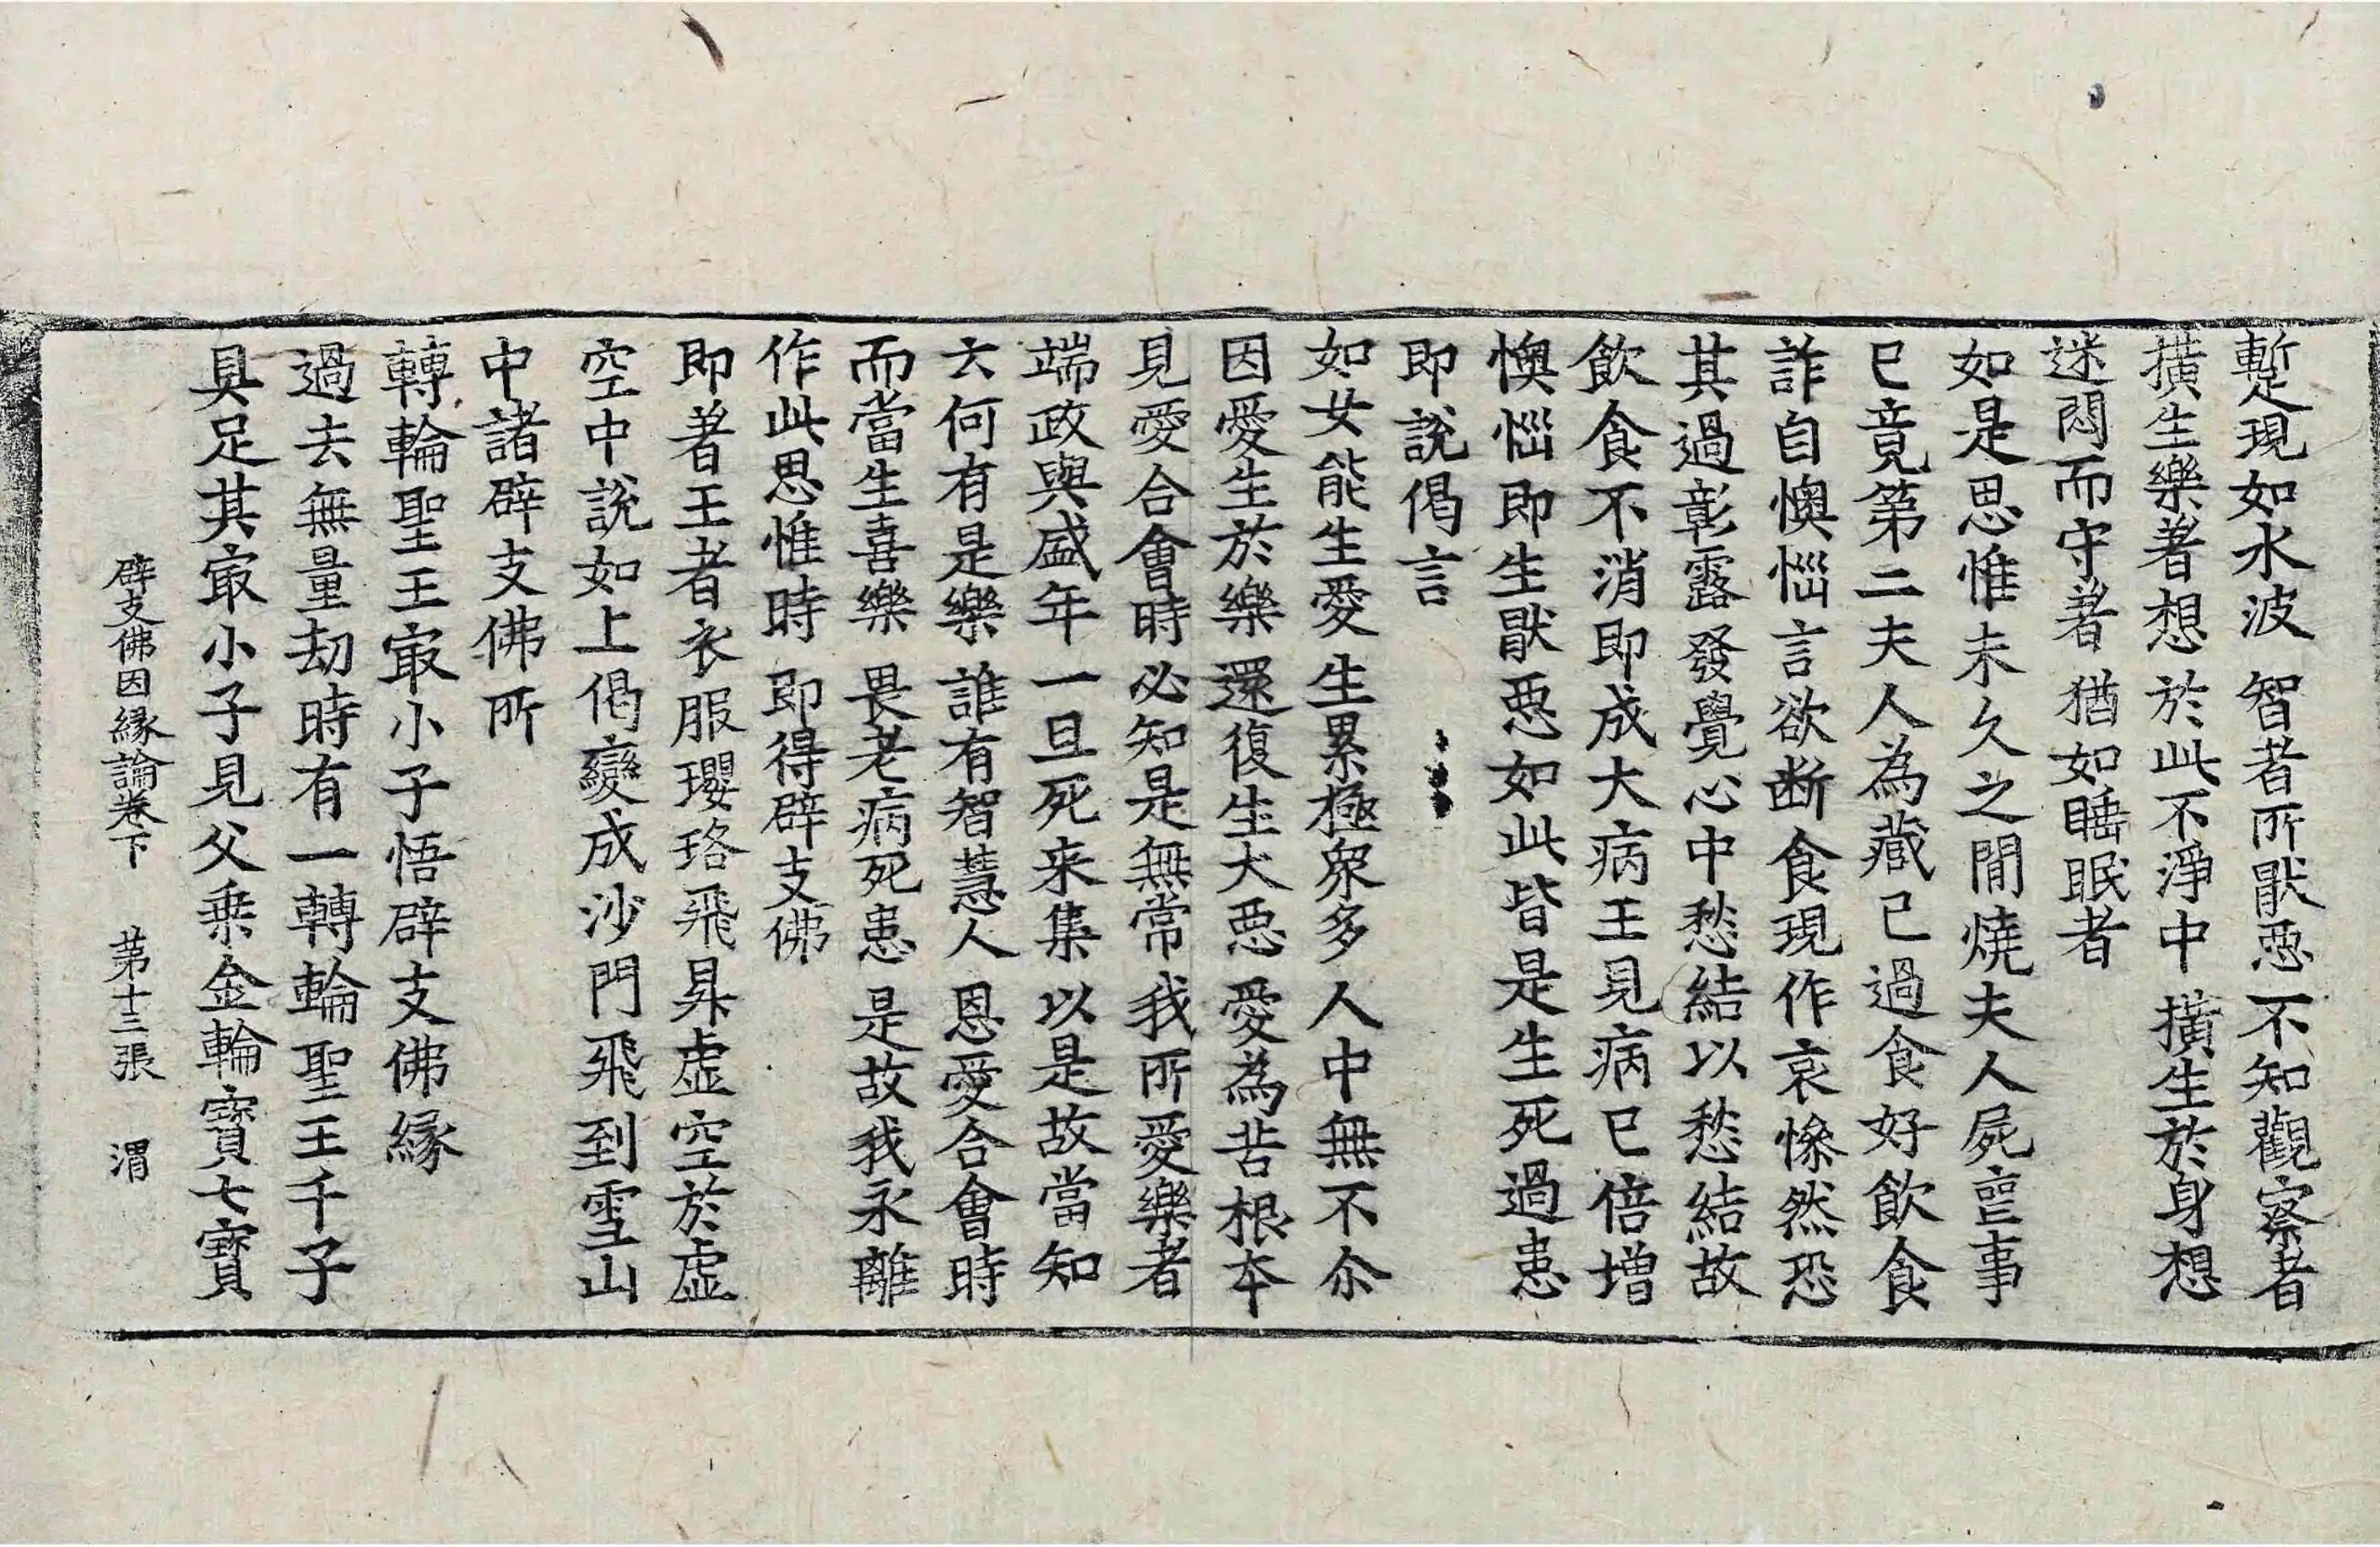 蹔現如水波 智者所猒惡 不知觀察者
擴生樂著想 於此不淨中 擴生於身想
迷悶而守著 猶如睡眠者
如是思惟未久之間燒夫人屍䘮事
已竟第二夫人為藏已過食好飲食
詐自懊惱言欲断食現作哀慘然恐
其過彰露發覺心中愁結以愁結故
飲食不消即成大病王見病已倍增
懊惱即生猒惡如此皆是生死過患
即說偈言
如女能生愛 生累極衆多 人中無不尒
因愛生於樂 還復生大惡 愛為苦根本
見愛合會時 必知是無常 我所愛樂者
端政與盛年 一旦死来集 以是故當知
云何有是樂 誰有智慧人 恩愛合會時
而當生喜樂 畏老病死患 是故我永離
作此思惟時 即得辟支佛
即著王者衣服瓔珞飛昇虛空於虛
空中說如上偈變成沙門飛到雪山
中諸辟支佛所
轉輪聖王㝡小子悟辟支佛縁
過去無量劫時有一轉輪聖王千子
具足其㝡小子見父乗金輪寶七寶
辟支佛因縁論卷下 苐十三張 渭